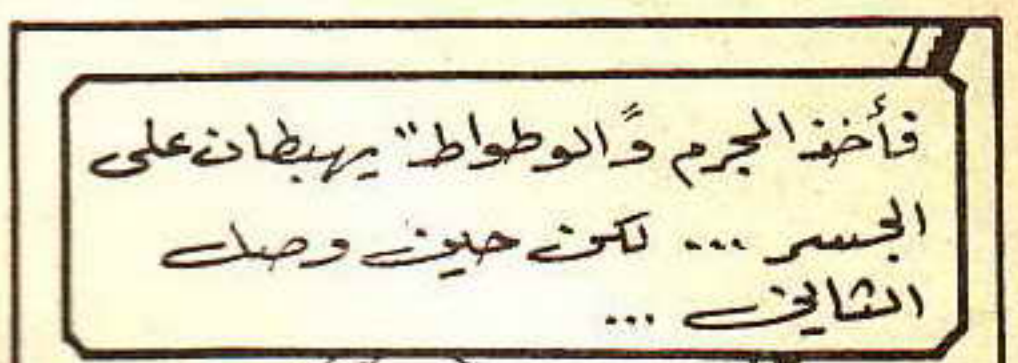 فأخذ المجرم و"الوطواط" يهبطان على
الجسر ... لكن حين وصل
الثاني ...